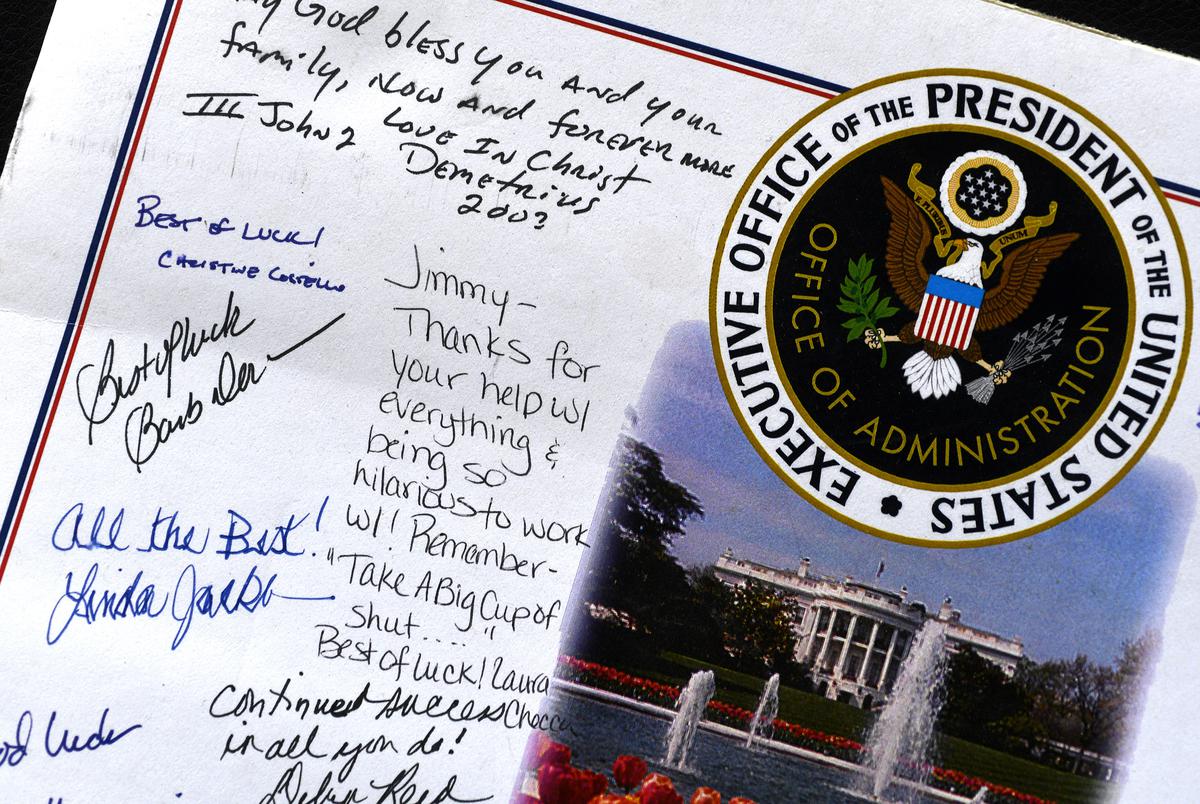 God bless you and your
family, now and forever more
III John 2 Love In Christ
Demetrius
2003
Best of Luck!
Christine Costello
Best of luck
Barb
Jimmy-
Thanks for
your help w/
everything &
being so
hilarious to work
w/! Remember-
"Take A Big Cup of
shut...."
Best of luck! Laura
All the Best!
Linda
Continued success
in all you do!
Debra Reed
EXECUTIVE OFFICE OF THE PRESIDENT OF THE UNITED STATES
OFFICE OF ADMINISTRATION
E PLURIBUS
UNUM